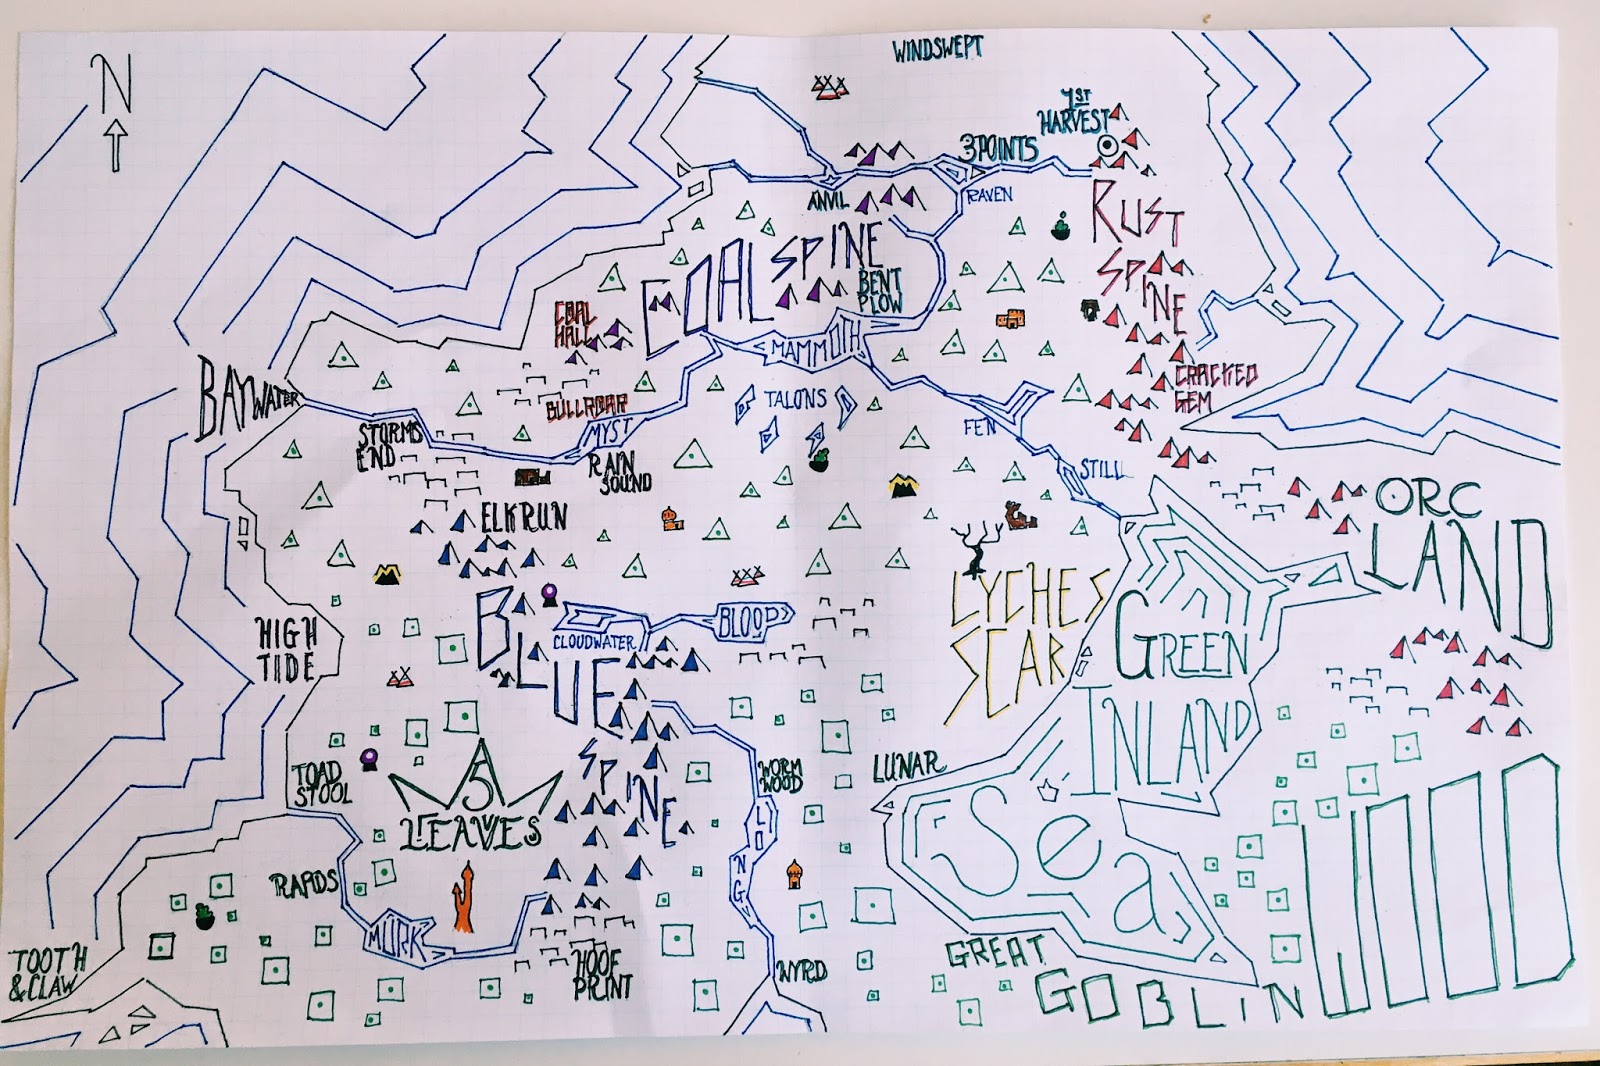 N
WINDSWEPT
1ST
HARVEST
3POINTS
ANVIL
RAVEN
RUST
SPINE
COAL SPINE
BENT
PLOW
COAL
HALL
MAMMOTH
BAYWATER
BULLROAR
TALONS
CRACKED
GEM
STORMS
END
MYST
FEN
RAIN
SOUND
STILL
ELKRUN
ORC
LAND
LYCHES
SCAR
BLUE
SPINE
CLOUDWATER
BLOOD
HIGH
TIDE
GREEN
INLAND
SEA
TOAD
STOOL
5
LEAVES
WORM
WOOD
LUNAR
LONG
RAPIDS
MURK
TOOTH
& CLAW
HOOF
PRINT
WYRD
GREAT
GOBLIN
WOOD